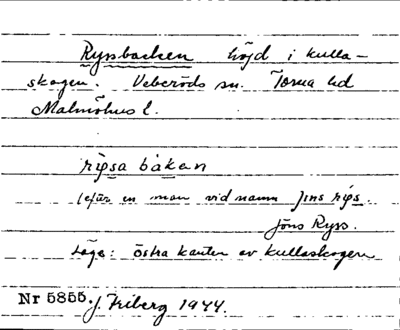 Ryssbacken höjd i kulla-
skogen. Veberöds sn. Torna hd
Malmöhus l.
ripsa båkan
(efter en man vid namn jins rips.
Jöns Ryss.
Läge: östra kanten av kullaskogen
Nr 5855. J. Friberg 1944.